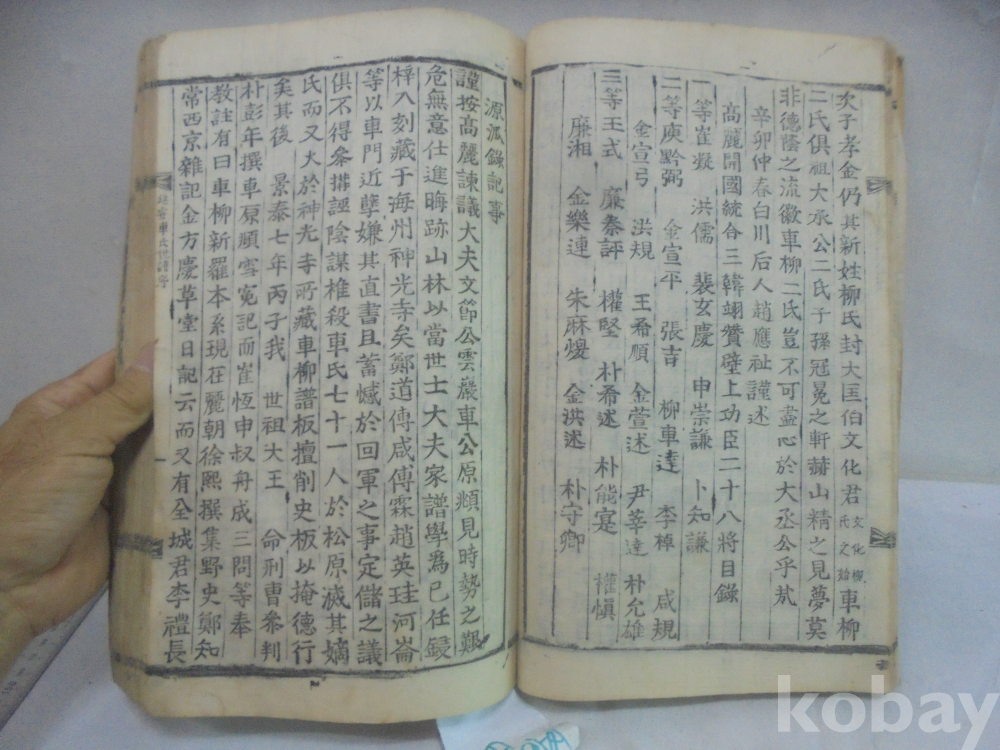 次子孝金仍其新姓柳氏封大匡伯文化君文化柳氏之始車柳
二氏俱祖大丞公二氏子孫冠冕之軒赫山精之見夢莫
非德蔭之流徽車柳二氏豈不可盡心於大丞公乎㢤
辛卯仲春白川后人趙應祉謹述
高麗開國統合三韓翊贊壁上功臣二十八將目錄
一等崔凝 洪儒 裴玄慶 申崇謙 卜知謙
二等庾黔弼 金宣平 張吉 柳車達 李棹 咸規
金宣弓 洪規 王希順 金萱述 尹莘達 朴允雄
三等王式 廉泰評 權堅 朴希述 朴能寔 權愼
廉湘 金樂連 朱麻煖 金洪述 朴守卿
源派錄記事
謹按高麗諫議大夫文節公雲巖車公原頫見時勢之艱
危無意仕進晦跡山林以當世士大夫家譜學爲已任鋟
梓入刻藏于海州神光寺矣鄭道傳咸傅霖趙英珪河崙
等以車門近孽嫌其直書且蓄憾於回軍之事定儲之議
俱不得參搆誣陰謀椎殺車氏七十一人於松原滅其嫡
氏而又大於神光寺所藏車柳譜板擅削史板以掩德行
矣其後 景泰七年丙子我 世祖大王 命刑曹參判
朴彭年撰車原頫雪寃記而崔恆申叔舟成三問等奉
教註有曰車柳新羅本系現在麗朝徐熙撰集野史鄭知
常西京雜記金方慶草堂日記云而又有全城君李禮長
車氏世譜序
kobay